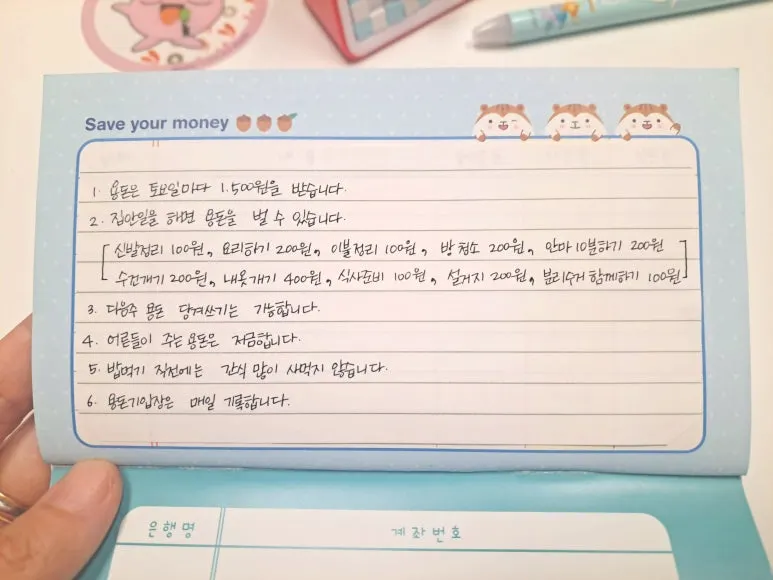 Save your money
1. 용돈은 토요일마다 1.500원을 받습니다.
2. 집안일을 해면 용돈을 벌 수 있습니다.
[신발정리 100원, 요리하기 200원, 이불정리 100원, 방 청소 200원, 안마 10분하기 200원
수건개기 200원, 내옷개기 400원, 식사준비 100원, 설거지 200원, 분리수거 함께하기 100원]
3. 다음주 용돈 당겨쓰기는 가능합니다.
4. 어른들이 주는 용돈은 저금합니다.
5. 밥먹기 직전에는 간식 많이 사먹지 않습니다.
6. 용돈기입장은 매일 기록합니다.
은행명 계좌번호